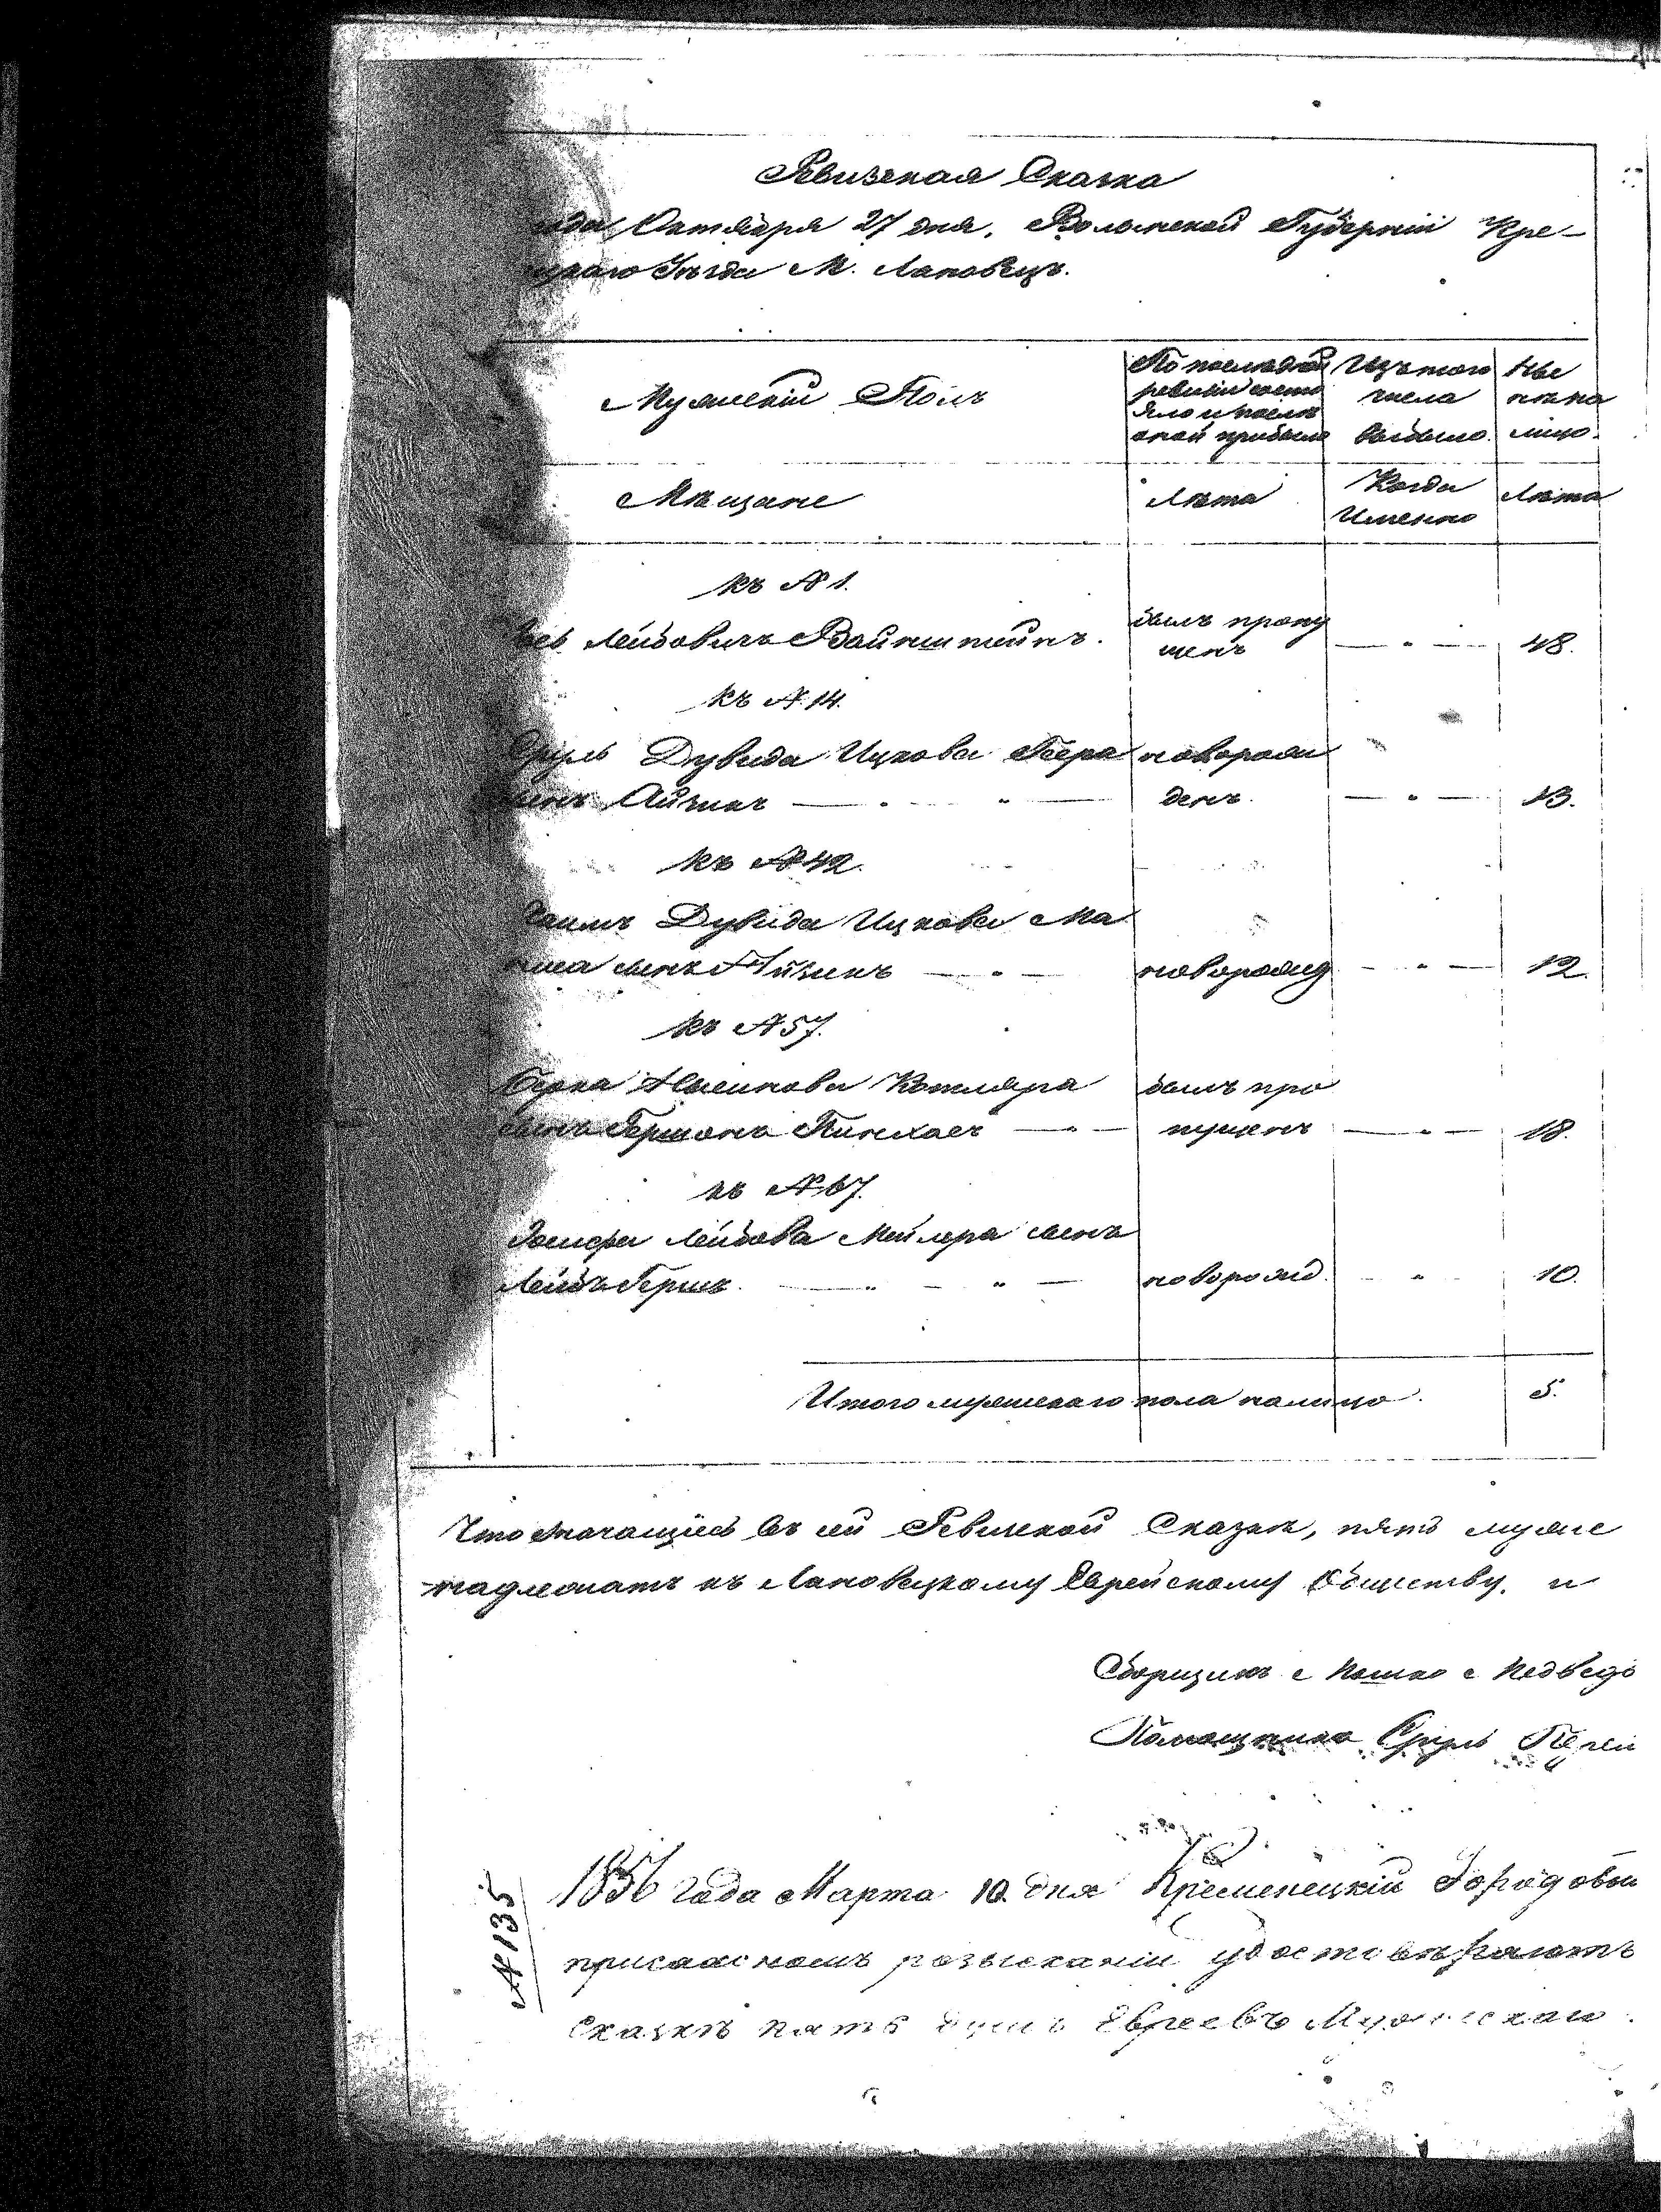 Ревизская Сказка
Октября 27 дня, Волынской Губернии Кре-
Уезда М. Лановецъ.
Мужеский Полъ
По последней ревизии состояло и после оной прибыло
Изъ того числа выбыло.
Ныне на лицо.
Мещане
Лета
Когда Именно
Лета
къ № 1.
Лейбовичъ Вайнштейнъ.
былъ пропущенъ
— " —
48.
къ № 14.
Сруль Дувида Ицкова
новорожденъ
Айзикъ — " — " —
— " —
13.
къ № 42.
Хаимъ Дувида Ицкова
сынъ Айзикъ — " —
новорожд
— " —
12.
къ № 57.
Берка Котляра
былъ про
сынъ Гершонъ Пинхасъ — " —
пущенъ
— " —
18.
къ № 67.
Иосифа Лейбова Мейлера сынъ
Лейбъ Гершъ — " — " —
новорожд.
— " —
10.
Итого мужескаго пола налицо.
5.
Что значащиеся въ сей Ревизской Сказке, пять муже
надлежатъ къ Лановецкому Еврейскому Обществу. и
Сборщикъ Мошко Медведь
Помощникъ Сруль
№ 135
1856 года Марта 10 дня Кременецкий Городовой
присяжномъ розыскании удостоверяютъ
Сказке пять душъ Евреевъ Мужескаго